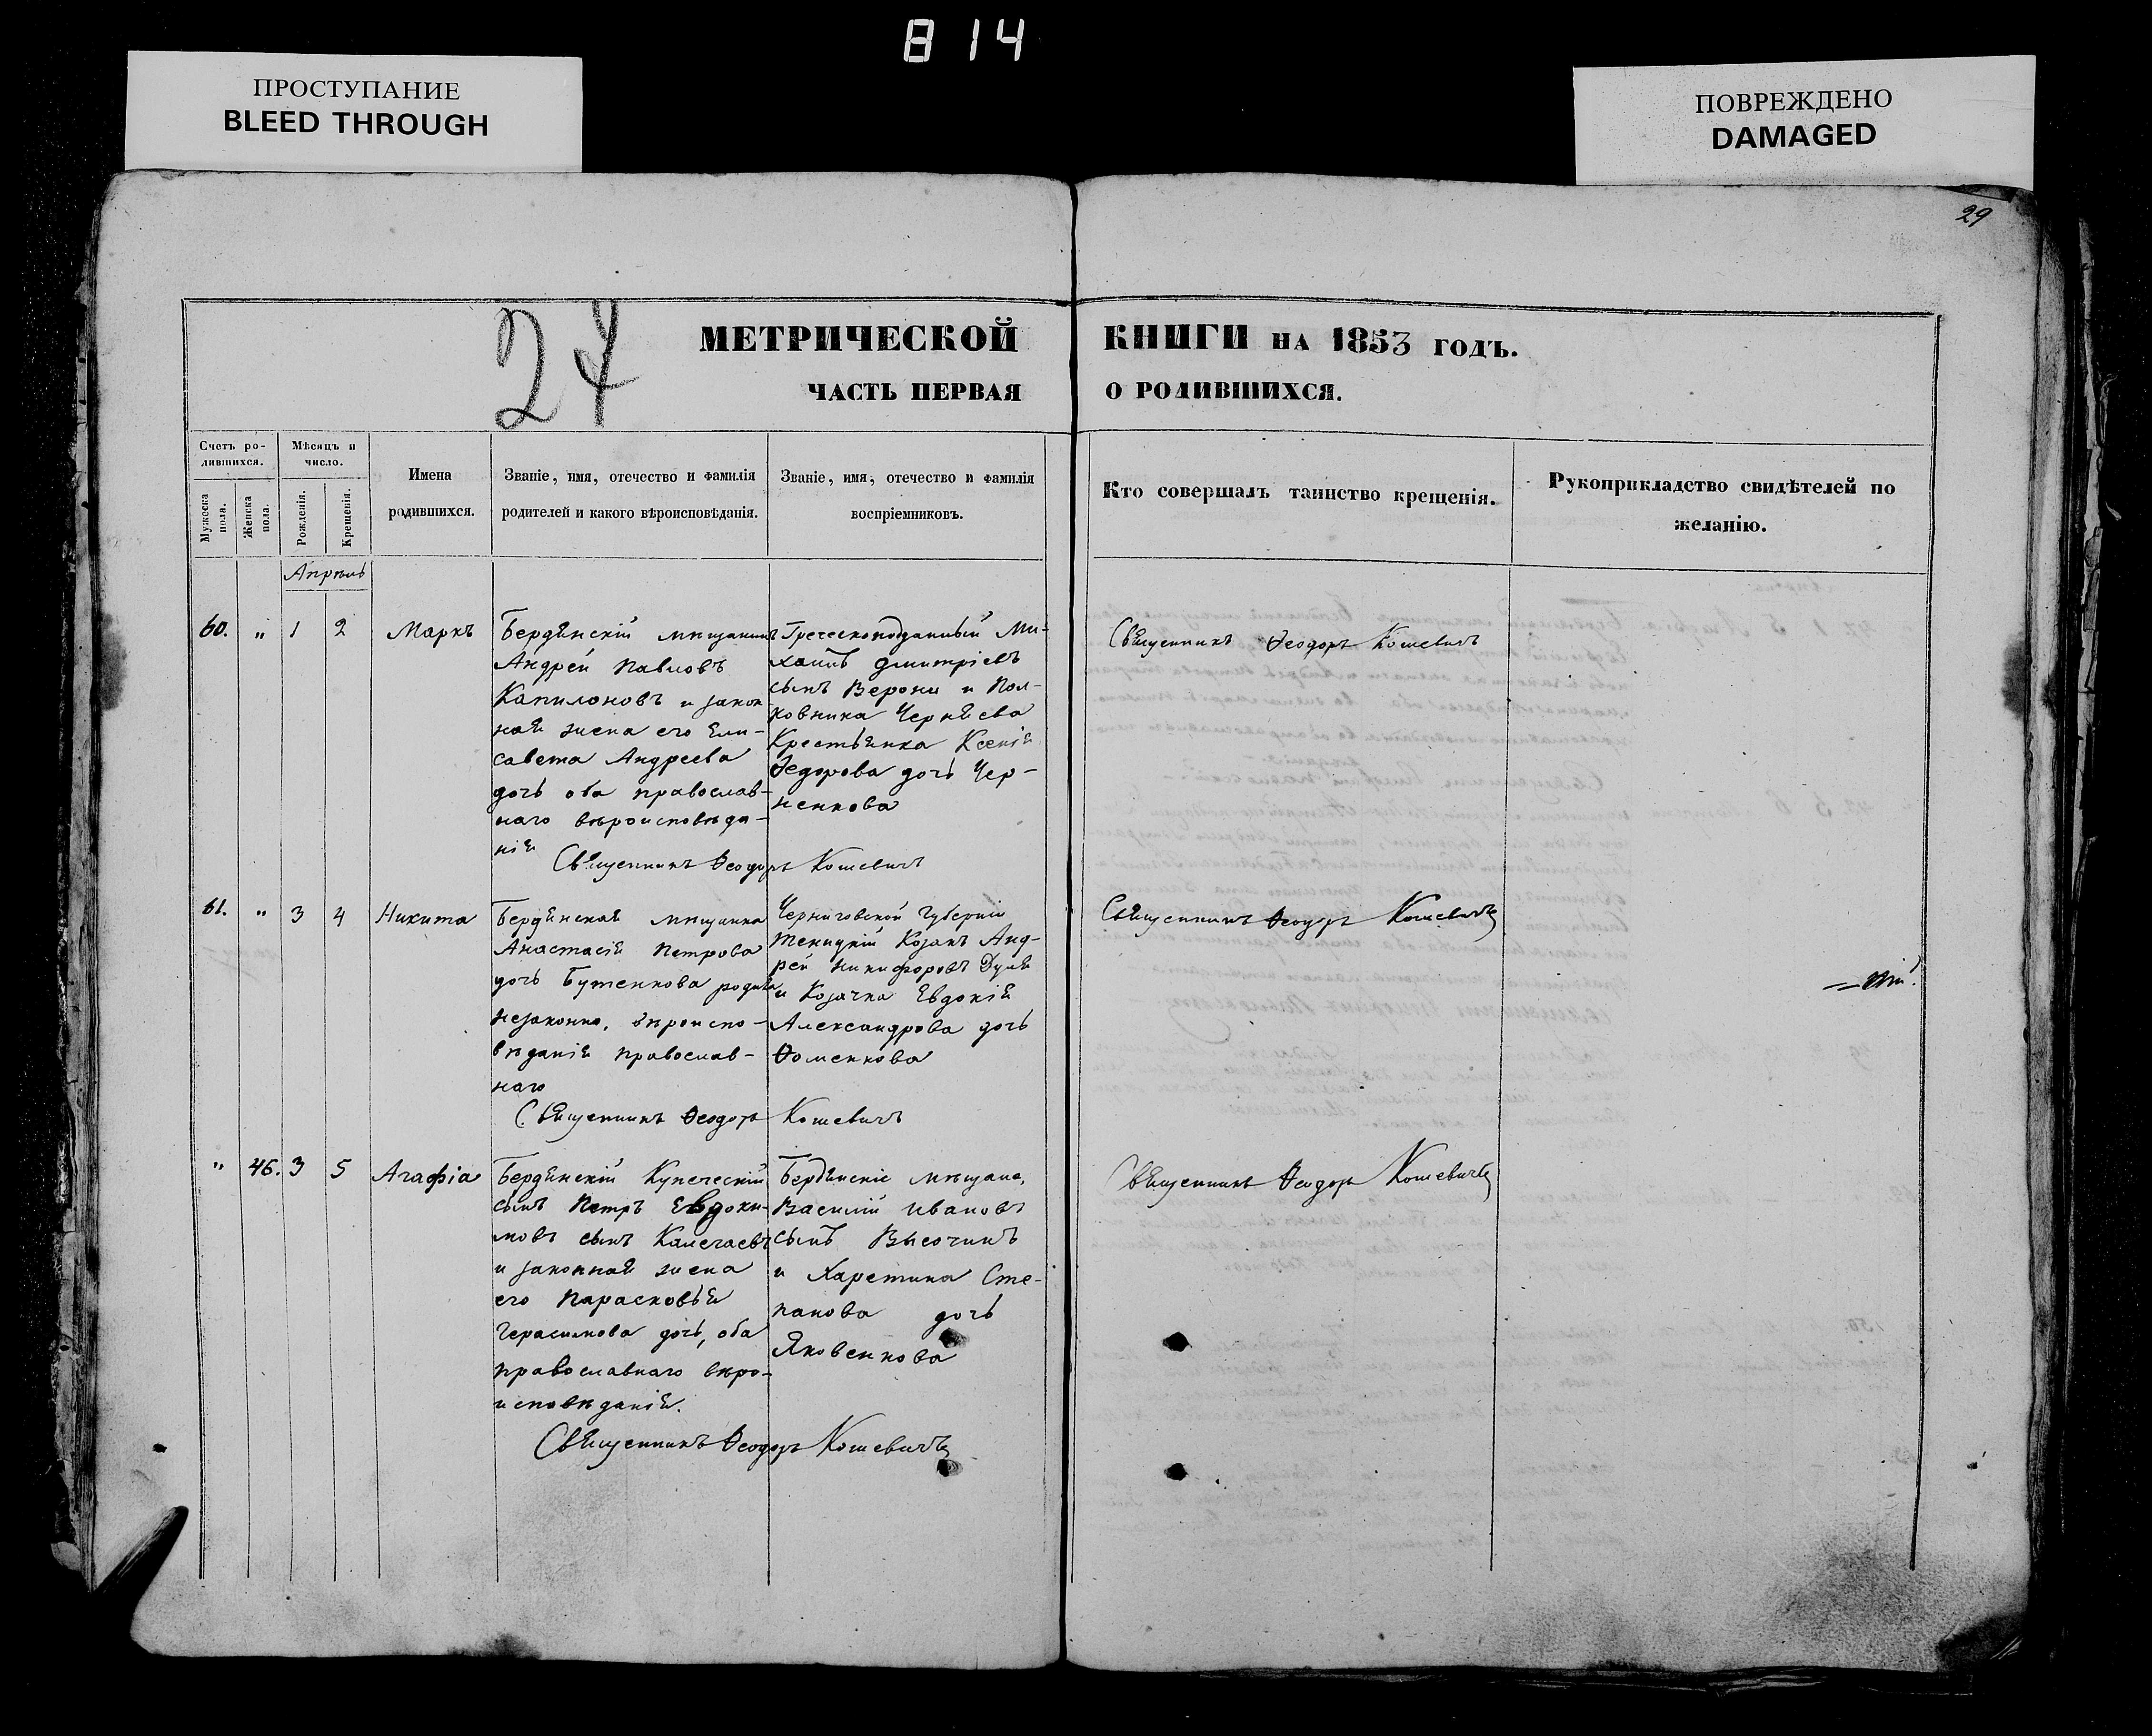 814
ПРОСТУПАНИЕ
BLEED THROUGH
ПОВРЕЖДЕНО
DAMAGED
29
24
МЕТРИЧЕСКОЙ КНИГИ НА 1853 ГОДЪ.
ЧАСТЬ ПЕРВАЯ О РОДИВШИХСЯ.
Счетъ ро-
дившихся.
Мужеска
пола.
Женска
пола.
Мѣсяцъ и
число.
Рожденія.
Крещенія.
Имена
родившихся.
Званіе, имя, отечество и фамилія
родителей и какого вѣроисповѣданія.
Званіе, имя, отечество и фамилія
воспріемниковъ.
Кто совершалъ таинство крещенія.
Рукоприкладство свидѣтелей по
желанію.
Апрѣль
60. " 1 2 Маркъ
Бердянскій мѣщанинъ
Андрей Павловъ
Капилоновъ и закон-
ная жена его Ели-
савета Андреева
дочь оба православ-
наго вѣроисповѣда-
нія
Греческоподданный Ми-
хаилъ Дмитріевъ
сынъ Верони и Пол-
ковника Черняева
Крестьянка Ксенія
Федорова дочь Чер-
ненкова
Священникъ Ѳеодоръ Кошевичъ
Священникъ Ѳеодоръ Кошевичъ
61. " 3 4 Никита
Бердянская мѣщанка
Анастасія Петрова
дочь Бутенкова родила
незаконно, вѣроиспо-
вѣданія православ-
наго
Черниговской Губерніи
Козакъ Анд-
рей Никифоровъ Дуля
и Козачка Евдокія
Александрова дочь
Ѳоменкова
Священникъ Ѳеодоръ Кошевичъ
Священникъ Ѳеодоръ Кошевичъ
" 46. 3 5 Агафіа
Бердянскій Купеческій
сынъ Петръ Евдоки-
мовъ сынъ Калегаевъ
и законная жена
его Парасковья
Герасимова дочь, оба
православнаго вѣро-
исповѣданія.
Бердянскіе мѣщане,
Василій Ивановъ
сынъ Высочинъ
и Харетина Сте-
панова дочь
Яковенкова
Священникъ Ѳеодоръ Кошевичъ
Священникъ Ѳеодоръ Кошевичъ